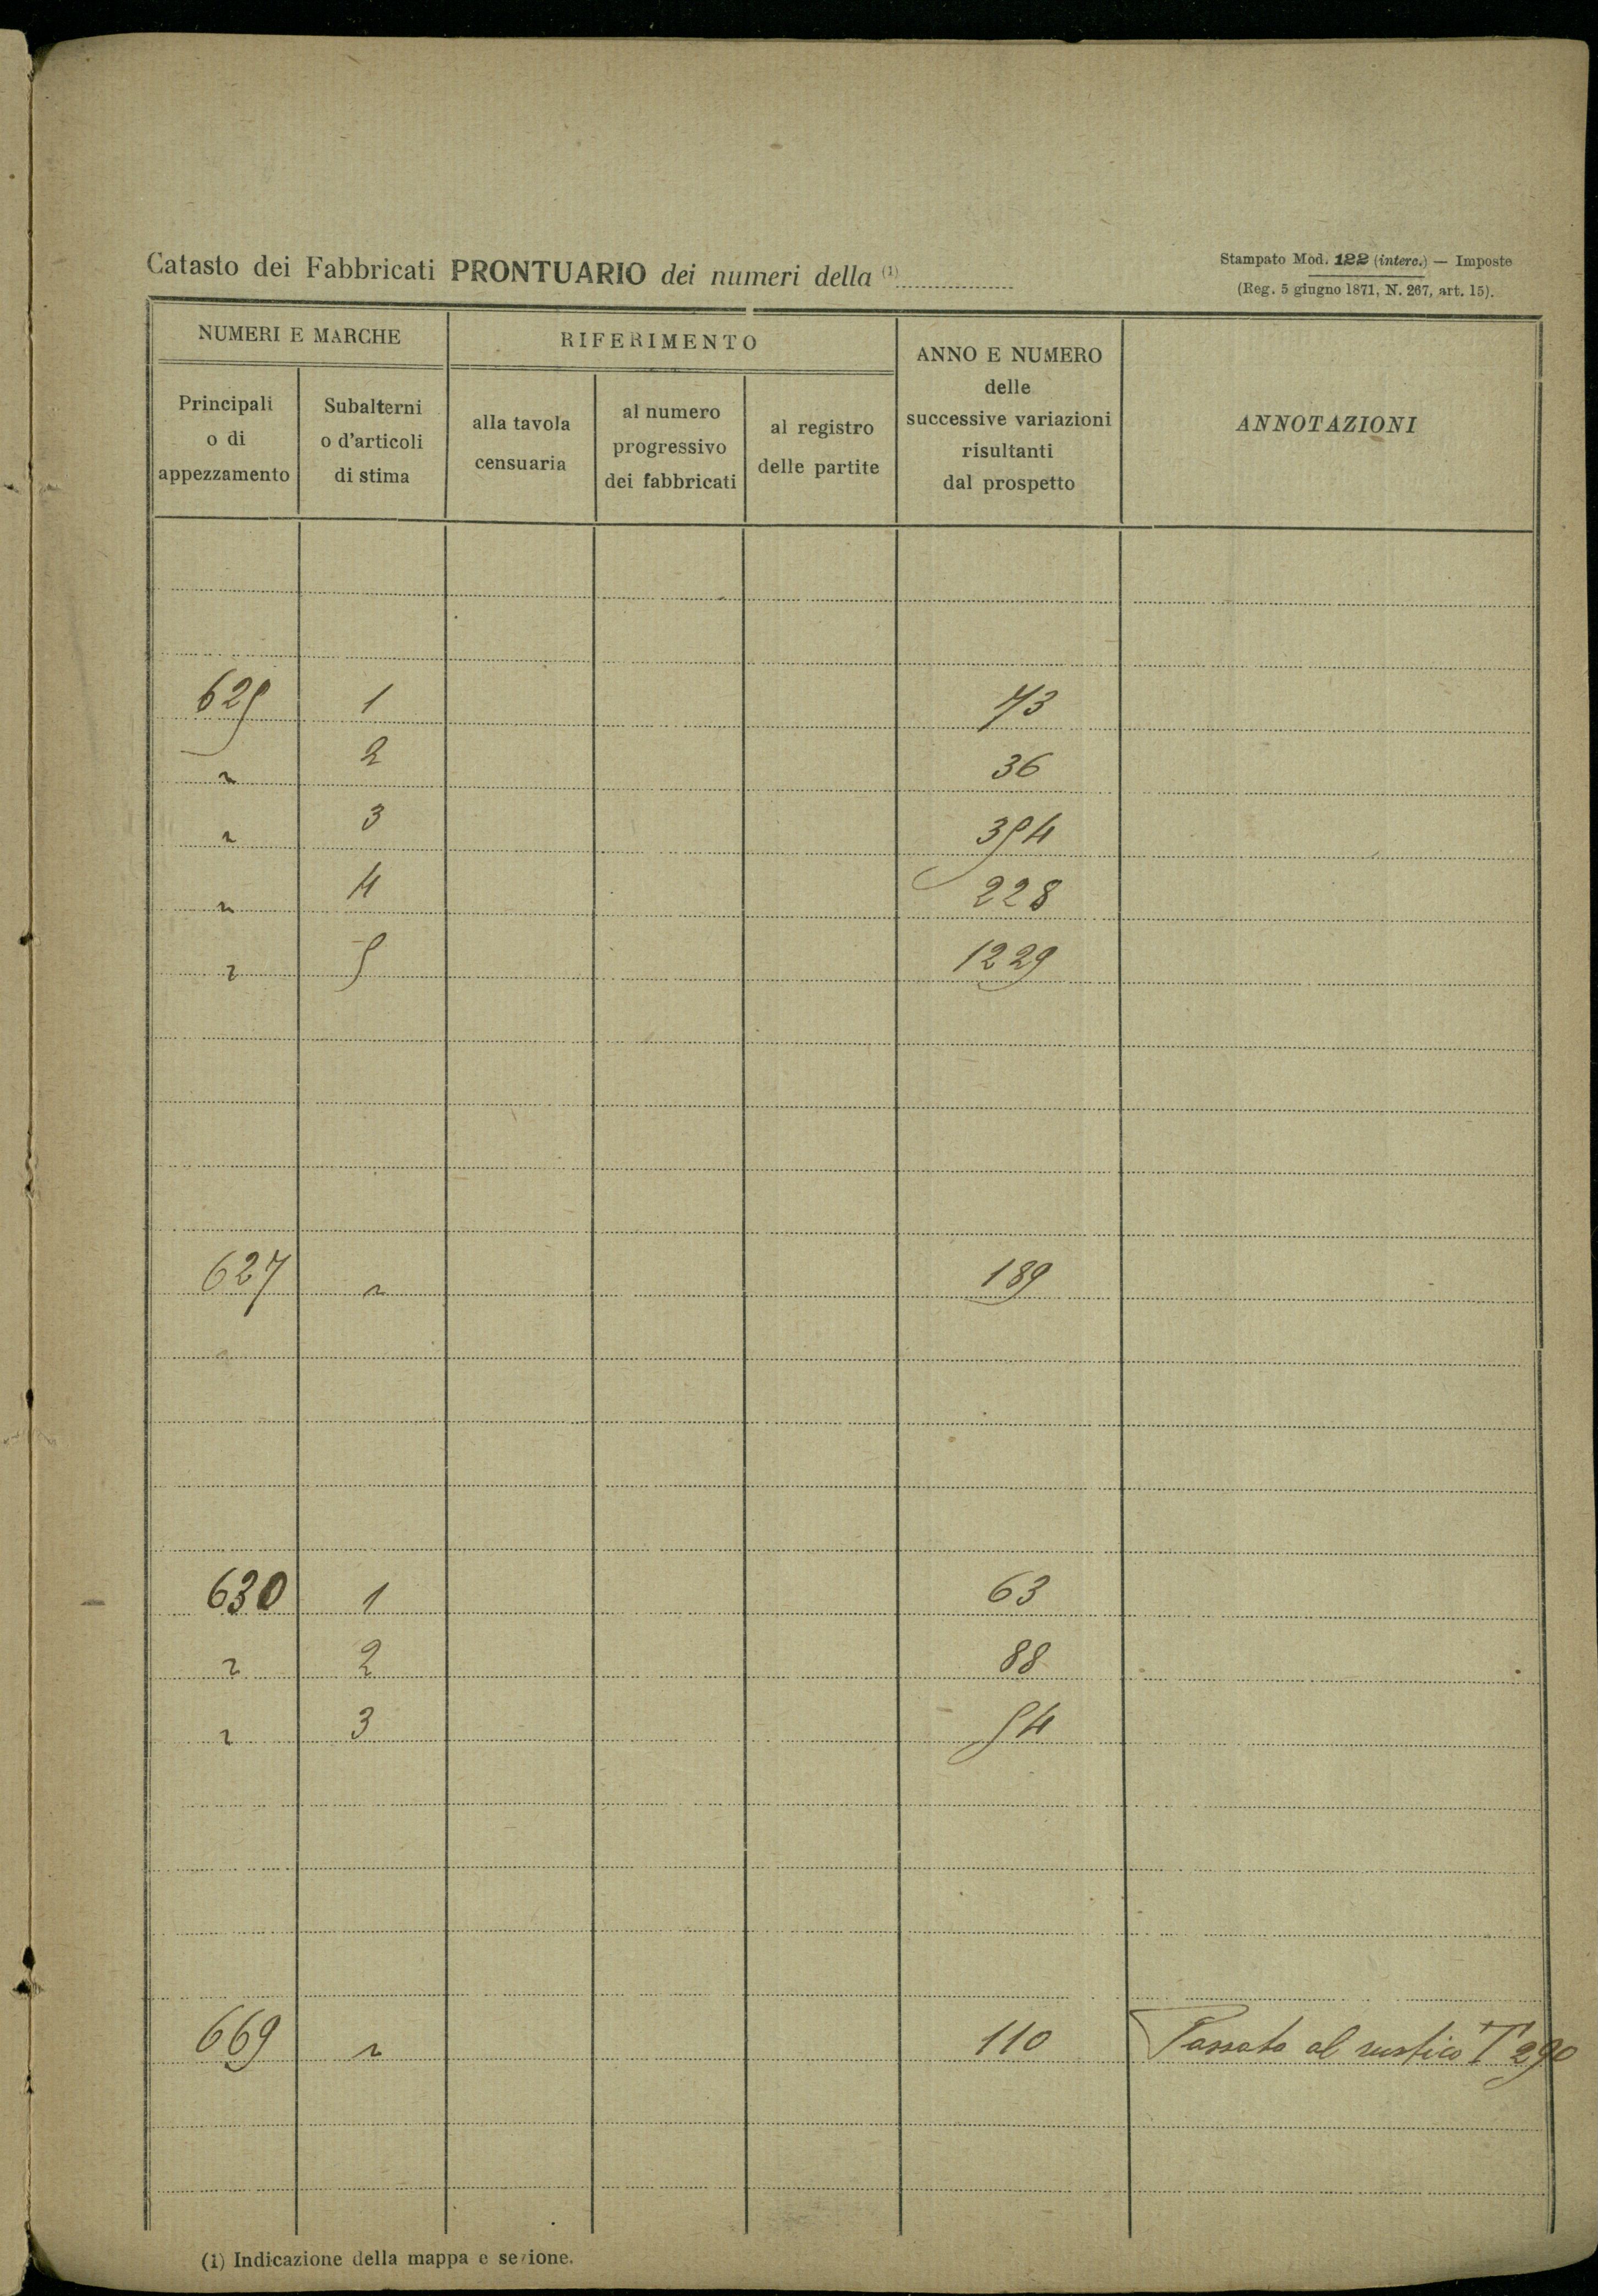 Catasto dei Fabbricati PRONTUARIO dei numeri della (1)
Stampato Mod. 122 (interc.) — Imposte
(Reg. 5 giugno 1871, N. 267, art. 15).
NUMERI E MARCHE
RIFERIMENTO
ANNO E NUMERO
delle
successive variazioni
risultanti
dal prospetto
ANNOTAZIONI
Principali
o di
appezzamento
Subalterni
o d'articoli
di stima
alla tavola
censuaria
al numero
progressivo
dei fabbricati
al registro
delle partite
625 1 73
" 2 36
" 3 354
" 4 228
" 5 1229
627 " 189
630 1 63
" 2 88
" 3 54
669 " 110 Passato al rustico T 290
(1) Indicazione della mappa e sezione.